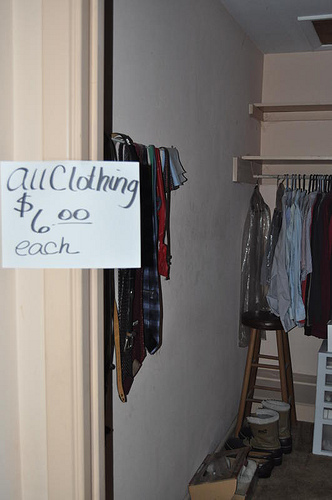 all Clothing
$6.00
each